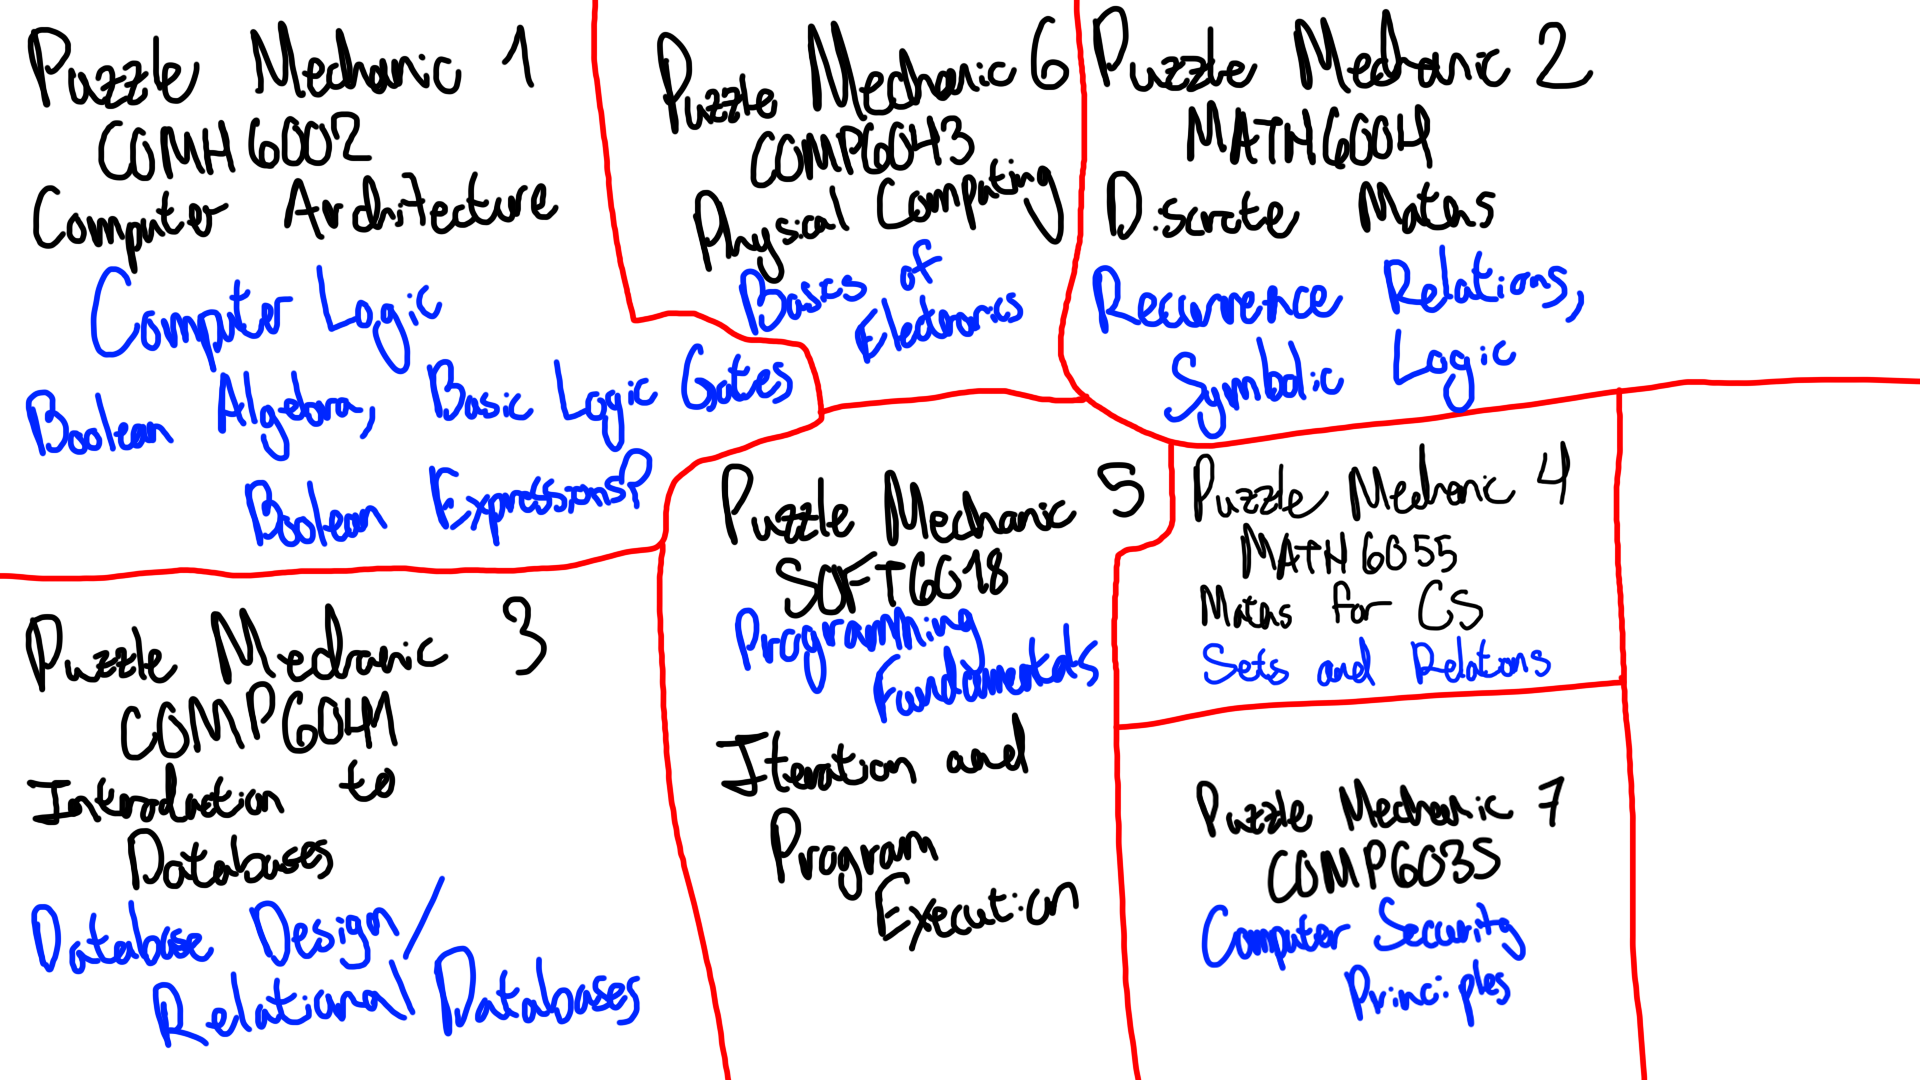 Puzzle Mechanic 1
COMH6002
Computer Architecture
Computer Logic
Boolean Algebra, Basic Logic Gates
Boolean Expressions?
Puzzle Mechanic 6
COMP6043
Physical Computing
Basics of
Electronics
Puzzle Mechanic 2
MATH6004
Discrete Maths
Recurrence Relations,
Symbolic Logic
Puzzle Mechanic 3
COMP6041
Introduction to
Databases
Database Design/
Relational Databases
Puzzle Mechanic 5
SOFT6018
Programming
Fundamentals
Iteration and
Program
Execution
Puzzle Mechanic 4
MATH6055
Maths for CS
Sets and Relations
Puzzle Mechanic 7
COMP6035
Computer Security
Principles